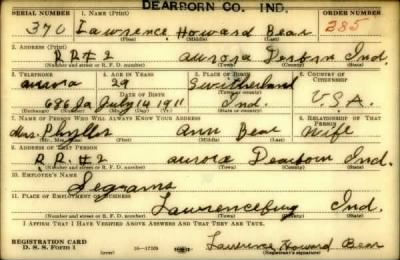 DEARBORN CO. IND.
SERIAL NUMBER 1. NAME (Print) ORDER NUMBER
370 Lawrence Howard Bear 285
(First) (Middle) (Last)
2. ADDRESS (Print)
R R #2 Aurora Dearborn Ind.
(Number and street or R. F. D. number) (Town) (County) (State)
3. TELEPHONE 4. AGE IN YEARS 5. PLACE OF BIRTH 6. COUNTRY OF CITIZENSHIP
Aurora 29 Switzerland
DATE OF BIRTH
686J2 July 14 1911 Ind. U.S.A.
7. NAME OF PERSON WHO WILL ALWAYS KNOW YOUR ADDRESS 8. RELATIONSHIP OF THAT PERSON
Mrs. Phyllis Ann Bear Wife
(Mr., Mrs., Miss) (First) (Middle) (Last)
9. ADDRESS OF THAT PERSON
R. R. #2 Aurora Dearborn Ind.
(Number and street or R. F. D. number) (Town) (County) (State)
10. EMPLOYER'S NAME
Segrams
11. PLACE OF EMPLOYMENT OR BUSINESS
Lawrenceburg Ind.
(Number and street or R. F. D. number) (Town) (County) (State)
I AFFIRM THAT I HAVE VERIFIED ABOVE ANSWERS AND THAT THEY ARE TRUE.
REGISTRATION CARD
D. S. S. Form 1 Lawrence Howard Bear
(over) (Registrant's signature)